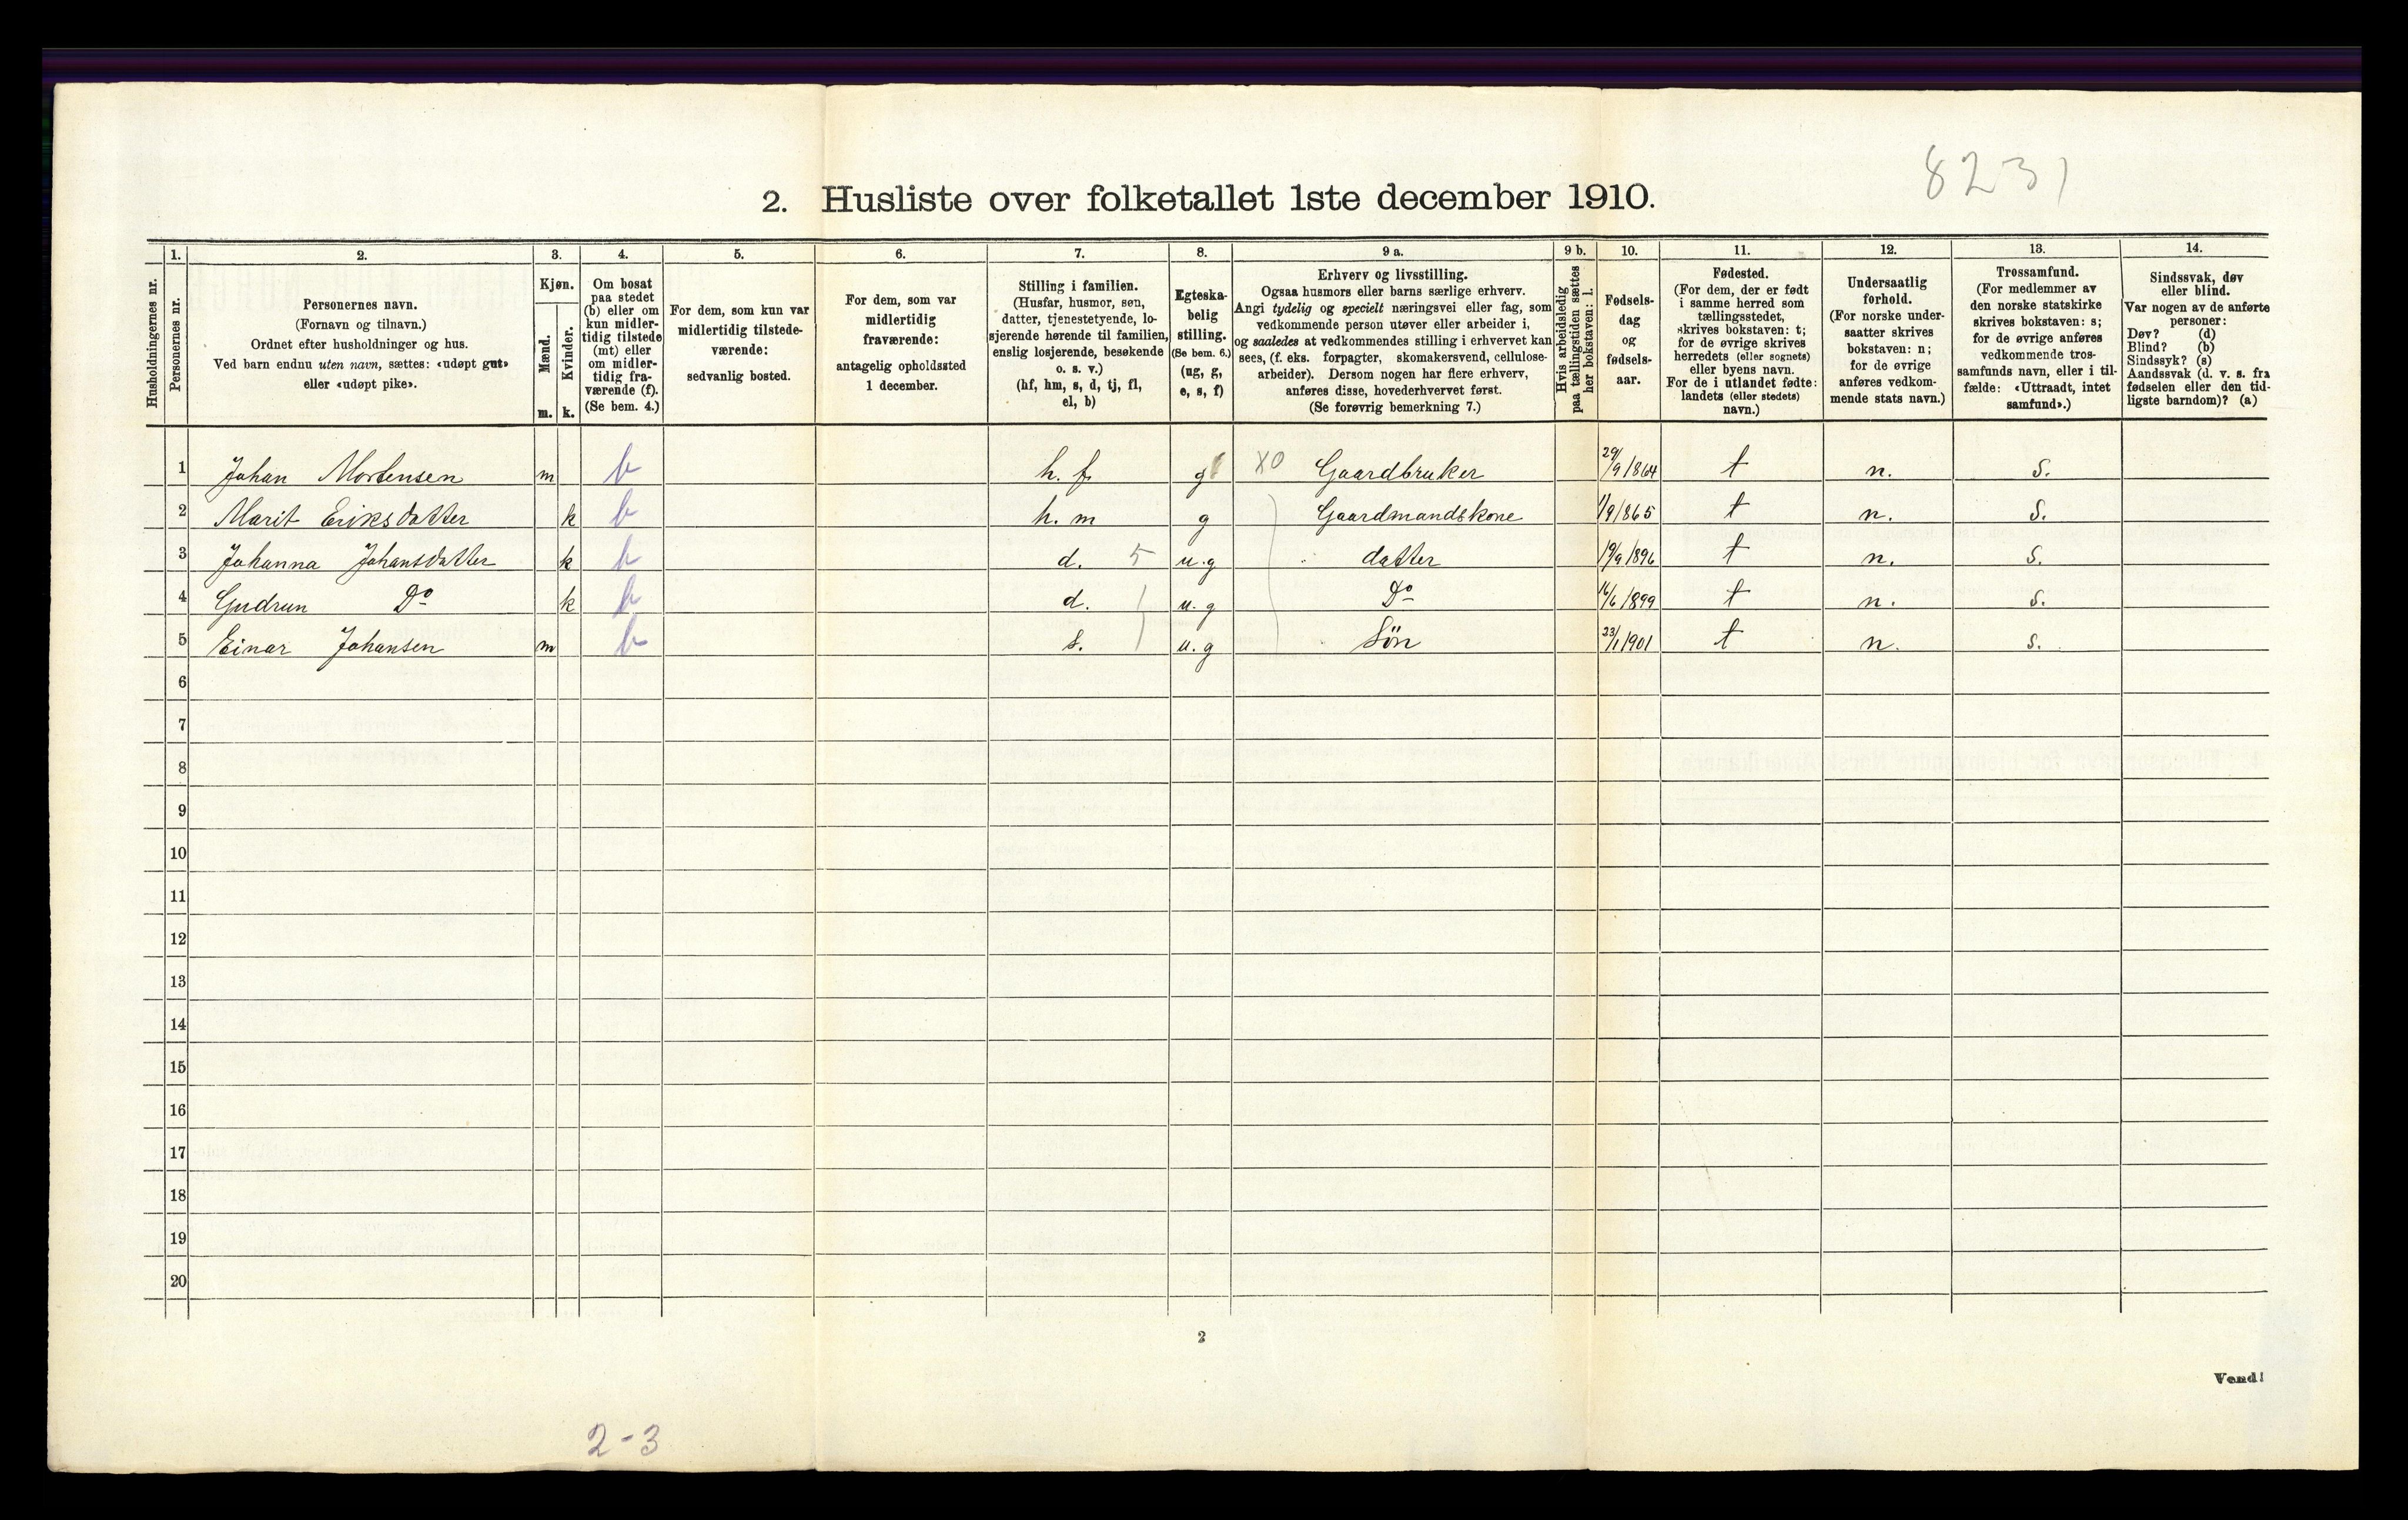 8231
2. Husliste over folketallet 1ste december 1910.
Husholdningernes nr.
1.
Personernes nr.
2.
Personernes navn.
(Fornavn og tilnavn.)
Ordnet efter husholdninger og hus.
Ved barn endnu uten navn, sættes: «udøpt gut»
eller «udøpt pike».
3.
Kjøn.
Mænd.
m.
Kvinder.
k.
4.
Om bosat
paa stedet
(b) eller om
kun midler-
tidig tilstede
(mt) eller
om midler-
tidig fra-
værende (f).
(Se bem. 4.)
5.
For dem, som kun var
midlertidig tilstede-
værende:
sedvanlig bosted.
6.
For dem, som var
midlertidig
fraværende:
antagelig opholdssted
1 december.
7.
Stilling i familien.
(Husfar, husmor, søn,
datter, tjenestetyende, lo-
sjerende hørende til familien,
enslig losjerende, besøkende
o. s. v.)
(hf, hm, s, d, tj, fl,
el, b)
8.
Egteska-
belig
stilling.
(Se bem. 6.)
(ug, g,
e, s, f)
9 a.
Erhverv og livsstilling.
Ogsaa husmors eller barns særlige erhverv.
Angi tydelig og specielt næringsvei eller fag, som
vedkommende person utøver eller arbeider i,
og saaledes at vedkommendes stilling i erhvervet kan
sees, (f. eks. forpagter, skomakersvend, cellulose-
arbeider). Dersom nogen har flere erhverv,
anføres disse, hovederhvervet først.
(Se forøvrig bemerkning 7.)
9 b.
Hvis arbeidsledig
paa tællingstiden sættes
her bokstaven: l.
10.
Fødsels-
dag
og
fødsels-
aar.
11.
Fødested.
(For dem, der er født
i samme herred som
tællingsstedet,
skrives bokstaven: t;
for de øvrige skrives
herredets (eller sognets)
eller byens navn.
For de i utlandet fødte:
landets (eller stedets)
navn.)
12.
Undersaatlig
forhold.
(For norske under-
saatter skrives
bokstaven: n;
for de øvrige
anføres vedkom-
mende stats navn.)
13.
Trossamfund.
(For medlemmer av
den norske statskirke
skrives bokstaven: s;
for de øvrige anføres
vedkommende tros-
samfunds navn, eller i til-
fælde: «Uttraadt, intet
samfund».)
14.
Sindssvak, døv
eller blind.
Var nogen av de anførte
personer:
Døv? (d)
Blind? (b)
Sindssyk? (s)
Aandssvak (d. v. s. fra
fødselen eller den tid-
ligste barndom)? (a)
1 Johan Mortensen m b h. f g X0 Gaardbruker 29/9 1864 t n. s.
2 Marit Eriksdatter k b h. m g Gaardmandskone 1/9 1865 t n. s.
3 Johanna Johansdatter k b d. 5 u.g datter 19/9 1896 t n. s.
4 Gudrun Do k b d. u. g Do 16/6 1899 t n. s.
5 Einar Johansen m b s. u. g Søn 23/1 1901 t n. s.
6
7
8
9
10
11
12
13
14
15
16
17
18
19
20
2
Vend!
2-3